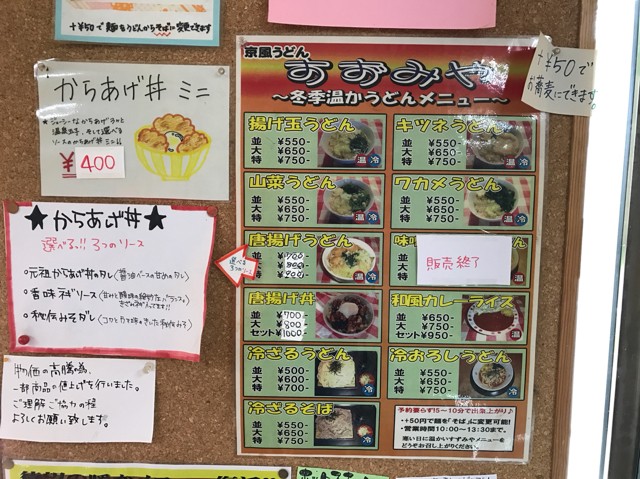 +¥50で麺をうどんからそばに変更できます
からあげ丼 ミニ
¥400
★からあげ丼★
選べる!! 3つのソース
・元祖からあげ丼のタレ(醤油ベースの甘めのタレ)
・香味ネギソース
・秘伝みそダレ
物価の高騰の為、
一部商品の値上げを行いました。
ご理解ご協力の程
よろしくお願い致します。
京風うどん
すずみや
～冬季温かうどんメニュー～
+¥50で
お蕎麦にできます。
揚げ玉うどん
並 ¥550-
大 ¥650-
特 ¥750-
温 冷
キツネうどん
並 ¥550-
大 ¥650-
特 ¥750-
温 冷
山菜うどん
並 ¥550-
大 ¥650-
特 ¥750-
温 冷
ワカメうどん
並 ¥550-
大 ¥650-
特 ¥750-
温 冷
選べる
3つのソース
唐揚げうどん
並 ¥700-
大 ¥800-
特
温 冷
味
販売終了
唐揚げ丼
並 ¥700-
大 ¥800-
セット¥1000-
和風カレーライス
並 ¥650-
大 ¥750-
セット¥950-
冷ざるうどん
並 ¥500-
大 ¥600-
特 ¥700-
冷
冷おろしうどん
並 ¥550-
大 ¥650-
特 ¥750-
冷
冷ざるそば
並 ¥550-
大 ¥650-
特 ¥750-
冷
予約要らず!5～10分で出来上がり♪
・+50円で麺を「そば」に変更可能!
・営業時間10:00～13:30まで。
寒い日に温かいすずみやメニューを
どうぞお召し上がりください。